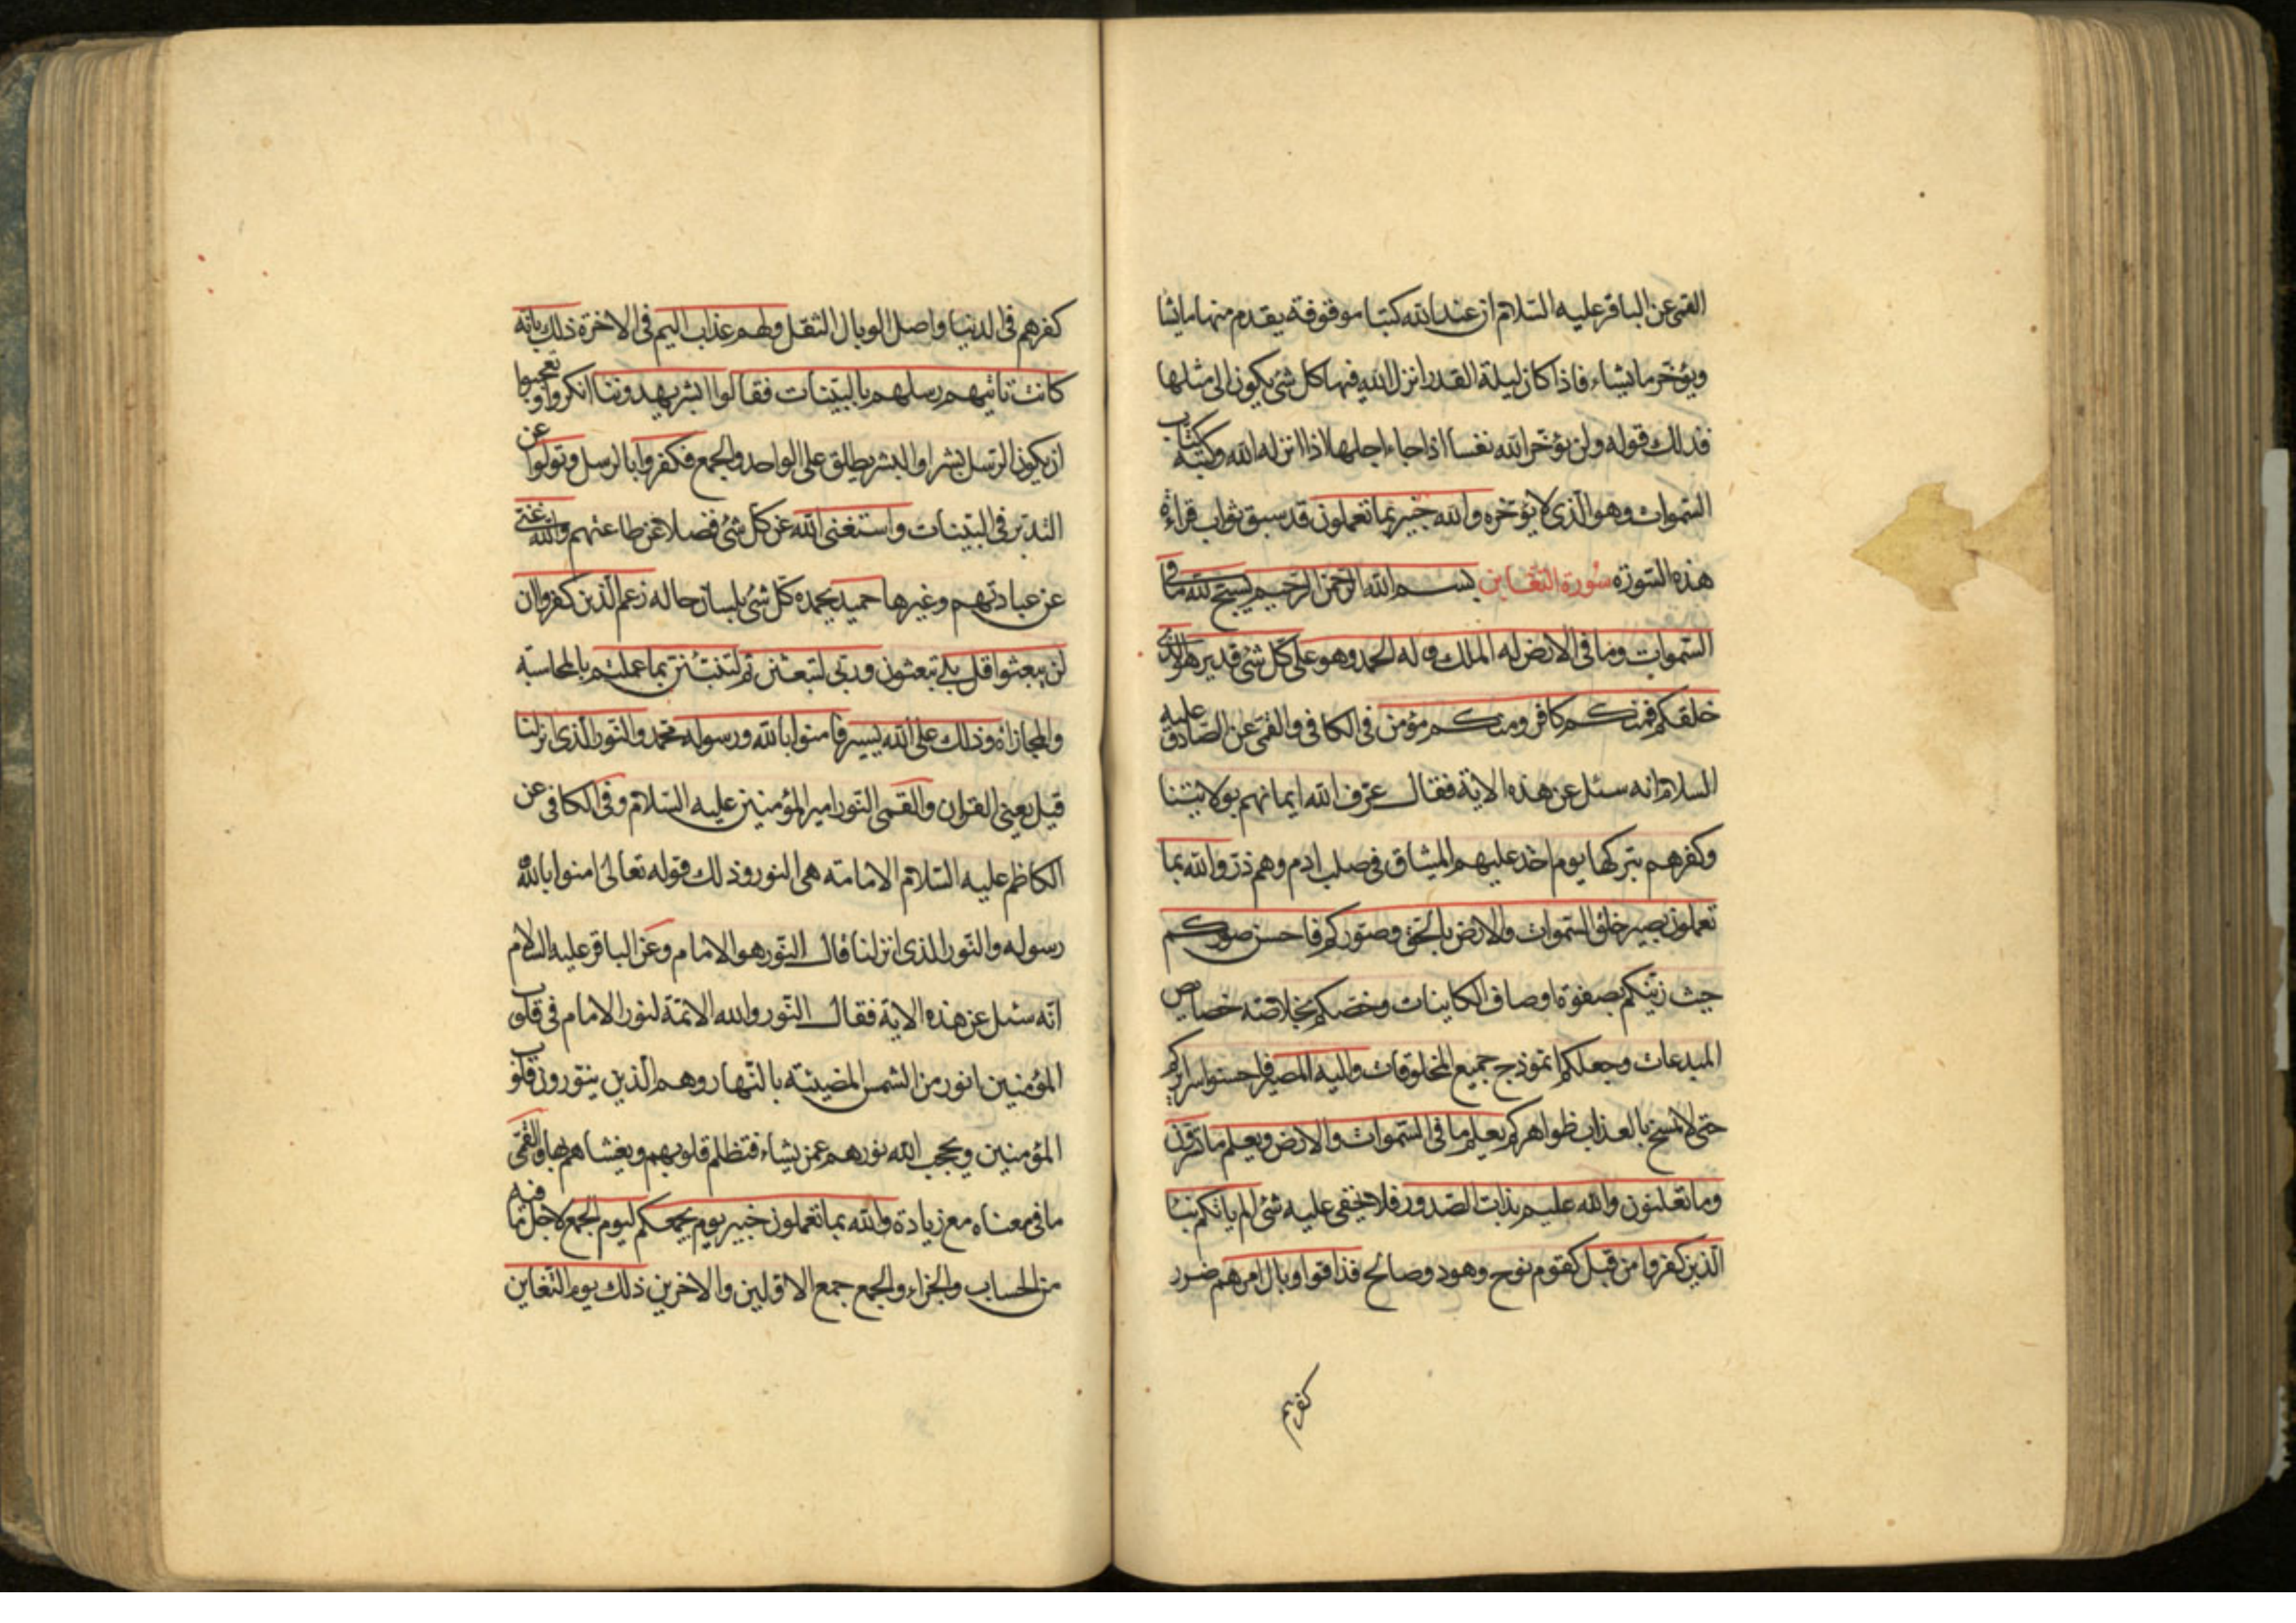 القمى عن الباقر عليه السلام ان عند الله كتبا موقوفة يقدم منها ما يشا
ويؤخر ما يشاء فاذا كان ليلة القدر انزل الله فيها كل شئ يكون الى مثلها
فذلك قوله ولن يؤخر الله نفسا اذا جاء اجلها اذا انزله الله وكتبه كتاب
السموات وهو الذى لا يؤخره والله خبير بما تعملون قد سبق ثواب قراءة
هذه السورة سورة التغابن بسم الله الرحمن الرحيم يسبح لله ما فى
السموات وما فى الارض له الملك وله الحمد وهو على كل شئ قدير هو الذى
خلقكم فمنكم كافر ومنكم مؤمن فى الكافى والقمى عن الصادق عليه
السلام انه سئل عن هذه الاية فقال عرف الله ايمانهم بولايتنا
وكفرهم بتركها يوم اخذ عليهم الميثاق فى صلب ادم وهم ذر والله بما
تعملون بصير خلق السموات والارض بالحق وصوركم فاحسن صوركم
حيث زينكم بصفوة اوصاف الكاينات وخصكم بخلاصة خصايص
المبدعات وجعلكم انموذج جميع المخلوقات واليه المصير فاحسنوا سرايركم
حتى لا يمسخ بالعذاب ظواهركم يعلم ما فى السموات والارض ويعلم ما تسرون
وما تعلنون والله عليم بذات الصدور فلا يخفى عليه شئ الم ياتكم نبئا
الذين كفروا من قبل كقوم نوح وهود وصالح فذاقوا وبال امرهم ضرر
كفرهم
كفرهم فى الدنيا واصل الوبال الثقل ولهم عذاب اليم فى الاخرة ذلك بانه
كانت تاتيهم رسلهم بالبينات فقالوا ابشر يهدوننا انكروا وتعجبوا
ان يكون الرسل بشرا والبشر يطلق على الواحد والجمع فكفروا بالرسل وتولوا عن
التدبر فى البينات واستغنى الله عن كل شئ فضلا عن طاعتهم والله غنى
عن عبادتهم وغيرها حميد يحمده كل شئ بلسان حاله زعم الذين كفروا ان
لن يبعثوا قل بلى تبعثون وربى لتبعثن ثم لتنبئن بما عملتم بالمحاسبة
والمجازاة وذلك على الله يسير فامنوا بالله ورسوله محمد والنور الذى انزلنا
قيل يعنى القران والقمى النور امير المؤمنين عليه السلام وفى الكافى عن
الكاظم عليه السلام الامامة هى النور وذلك قوله تعالى امنوا بالله
رسوله والنور الذى انزلنا قال النور هو الامام وعن الباقر عليه السلام
انه سئل عن هذه الاية فقال النور والله الائمة لنور الامام فى قلوب
المؤمنين انور من الشمس المضيئة بالنهار وهم الذين ينورون قلوب
المؤمنين ويحجب الله نورهم عمن يشاء فتظلم قلوبهم ويغشاهم بها والقمى
ما فى معناه مع زيادة والله بما تعملون خبير يوم يجمعكم ليوم الجمع لاجل ما فيه
من الحساب والجزاء والجمع جمع الاولين والاخرين ذلك يوم التغابن